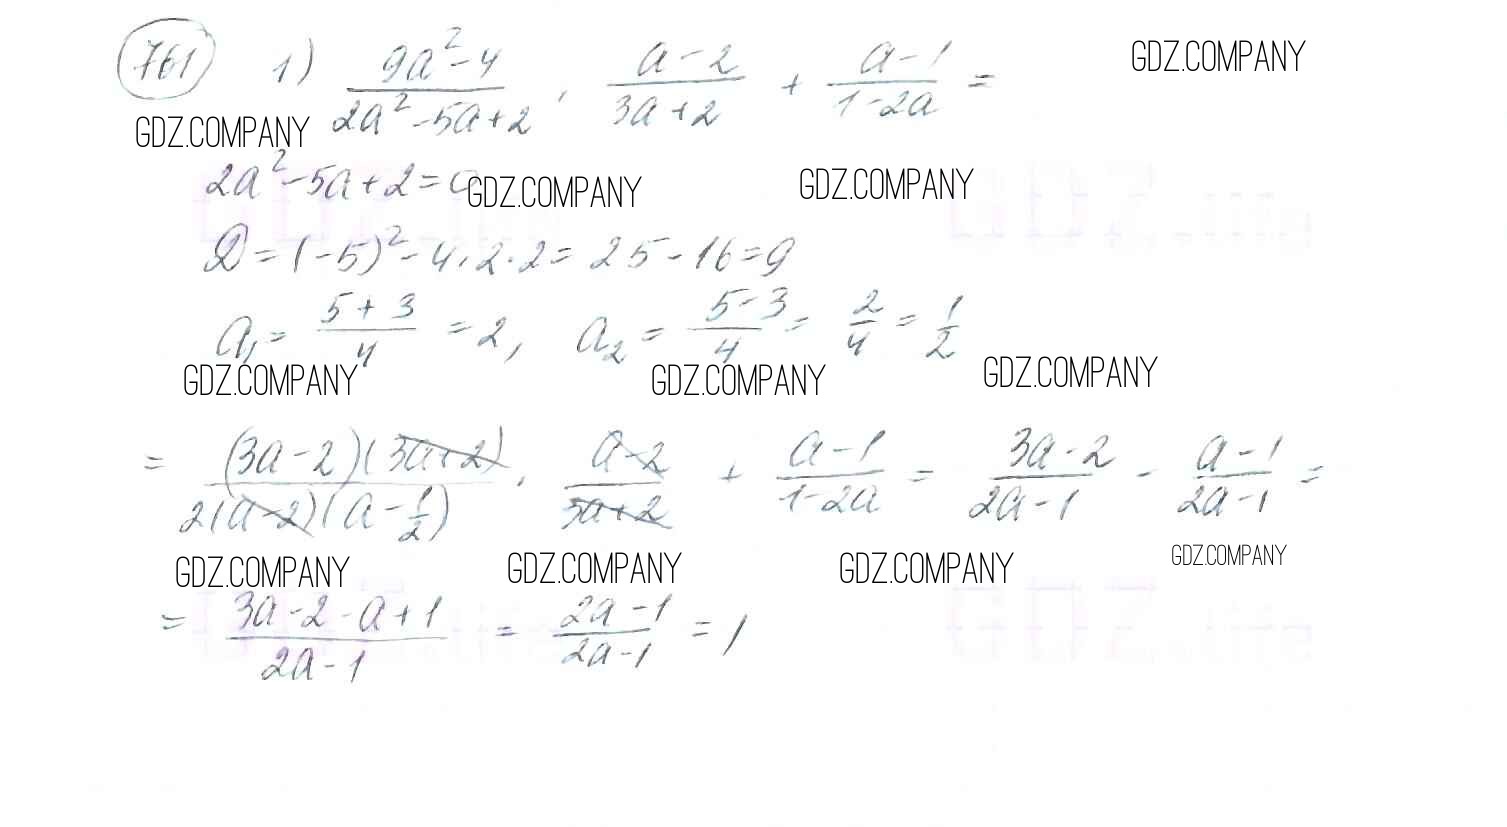 761 1) (9a² - 4)/(2a² - 5a + 2) · (a - 2)/(3a + 2) + (a - 1)/(1 - 2a) =
GDZ.COMPANY
GDZ.COMPANY
2a² - 5a + 2 = 0
GDZ.COMPANY GDZ.COMPANY
D = (-5)² - 4 · 2 · 2 = 25 - 16 = 9
a₁ = (5 + 3)/4 = 2, a₂ = (5 - 3)/4 = 2/4 = 1/2
GDZ.COMPANY GDZ.COMPANY GDZ.COMPANY
= (3a - 2)(3a + 2)/(2(a - 2)(a - 1/2)) · (a - 2)/(3a + 2) + (a - 1)/(1 - 2a) = (3a - 2)/(2a - 1) - (a - 1)/(2a - 1) =
GDZ.COMPANY GDZ.COMPANY GDZ.COMPANY GDZ.COMPANY
= (3a - 2 - a + 1)/(2a - 1) = (2a - 1)/(2a - 1) = 1